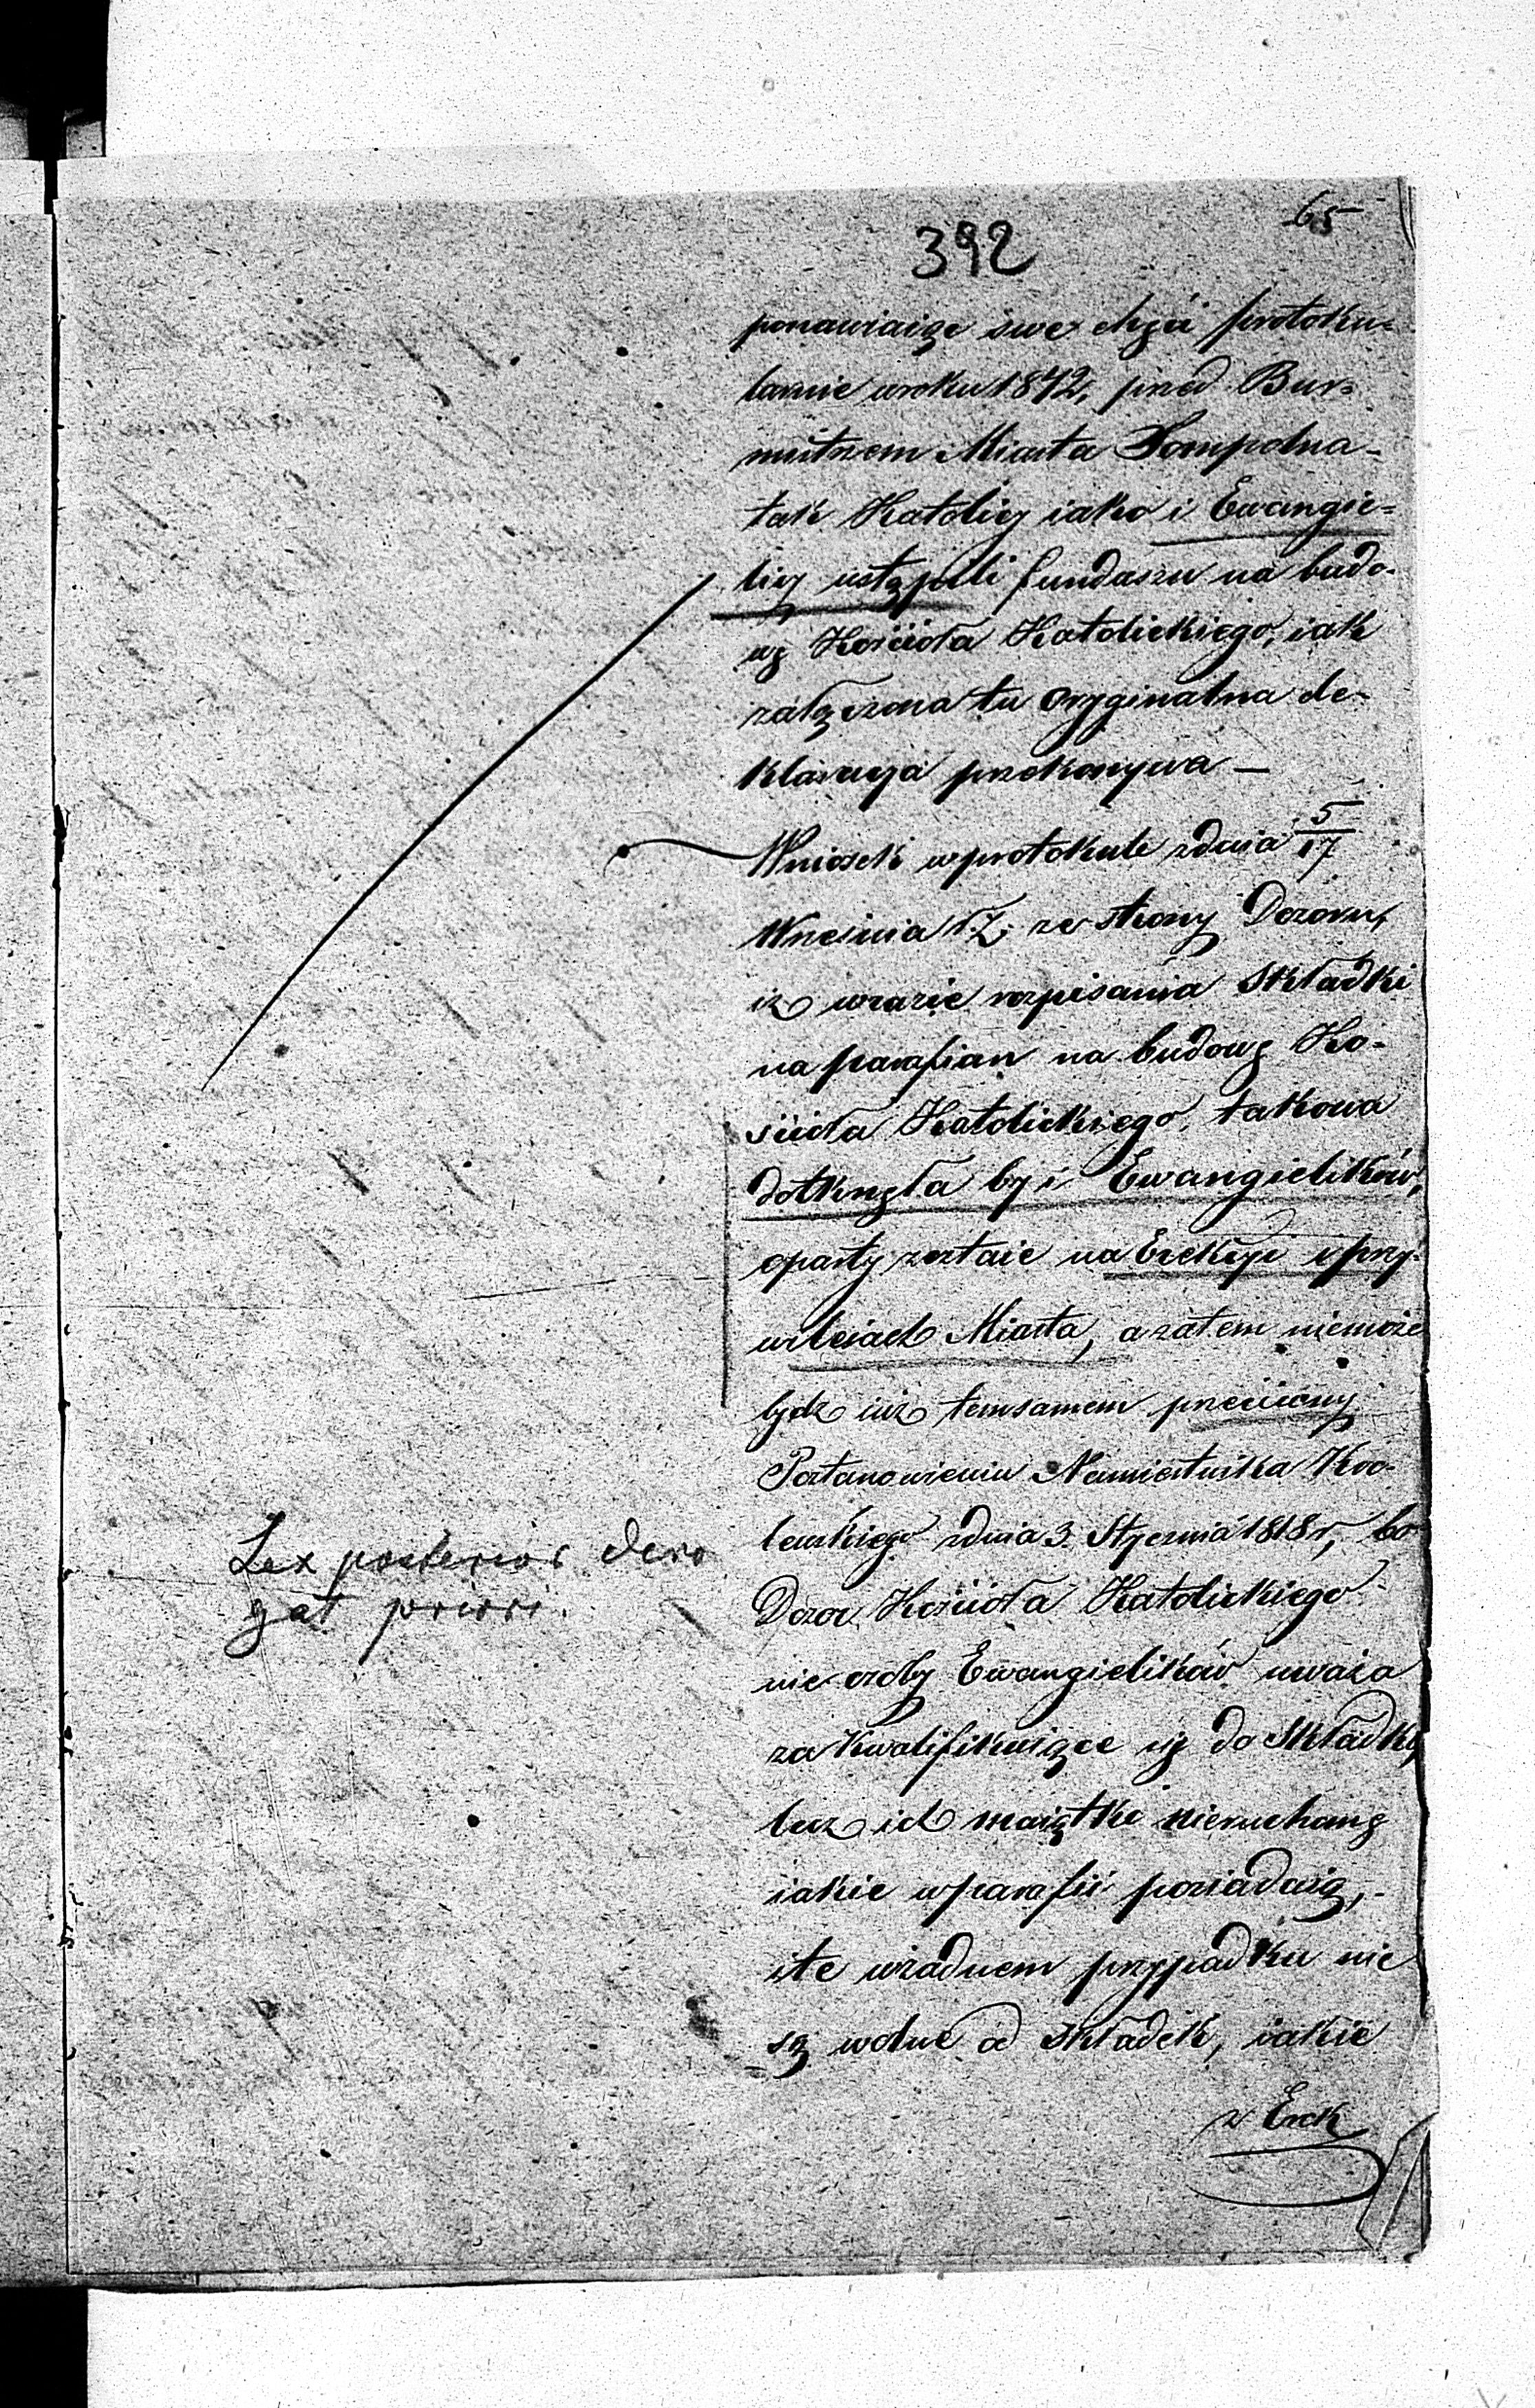 65
392
ponawiaiąc swe chęci protoku=
larnie w roku 1842, przed Bur=
mistrzem Miasta Sompolna -
tak Katolicy iako i Ewangie=
licy ustąpili funduszu na budo-
wę Kościoła Katolickiego, iak
załączona tu oryginalna de-
klaracya przekonywa —
Wniosek w protokule z dnia 5/17
Września r.z. ze strony Dozoru,
iż w razie rozpisania Składki
na parafian na budowę Ko-
ścioła Katolickiego, takowa
dotknęła by i Ewangielików,
oparty zostaie na Erekcyi i przy-
wileiach Miasta, a zatem niemoże
bydz iuż temsamem przeciwny
Postanowieniu Namiestnika Kró-
lewskiego z dnia 3. Stycznia 1818 r, bo
Dozor Kościoła Katolickiego
nie osoby Ewangielików uważa
za kwalifikuiące się do Składki,
lecz ich maiątki nieruchome
iakie w parafii posiadaią, -
i te w żadnem przypadku nie
są wolne od składek, iakie
z Erek
Lex posterior dero
gat priori.